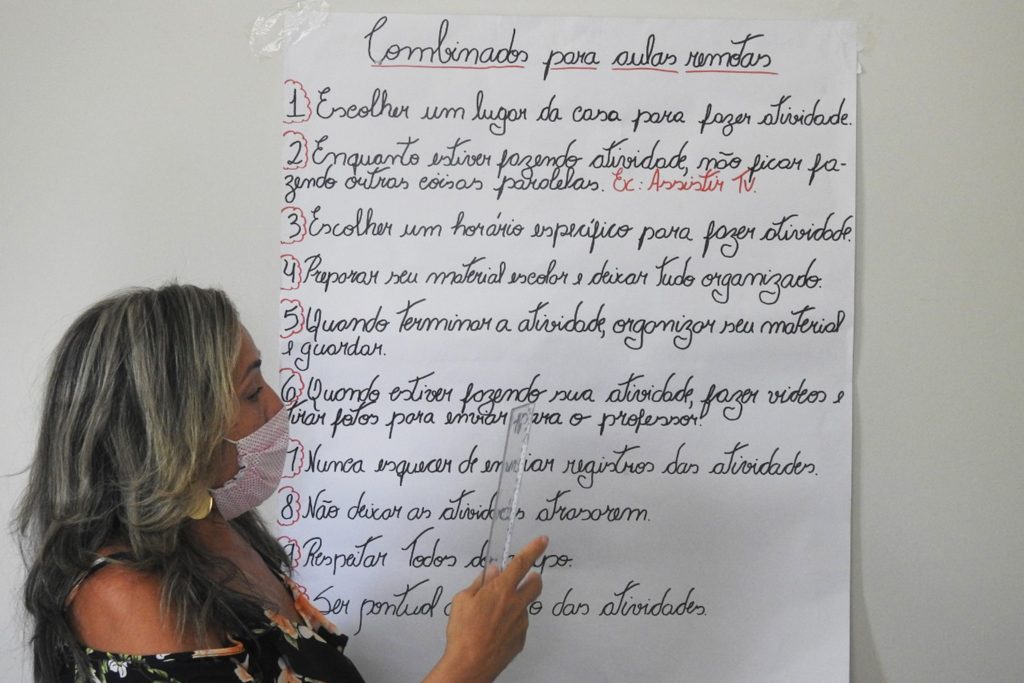 Combinados para aulas remotas
1 Escolher um lugar da casa para fazer atividade.
2 Enquanto estiver fazendo atividade, não ficar fa-
zendo outras coisas paralelas. Ex: Assistir Tv.
3 Escolher um horário específico para fazer atividade.
4 Preparar seu material escolar e deixar tudo organizado.
5 Quando terminar a atividade, organizar seu material
e guardar.
6 Quando estiver fazendo sua atividade, fazer videos e
tirar fotos para enviar para o professor!
7 Nunca esquecer de enviar registros das atividades.
8 Não deixar as atividades atrasarem.
9 Respeitar todos do
Ser pontual o das atividades.